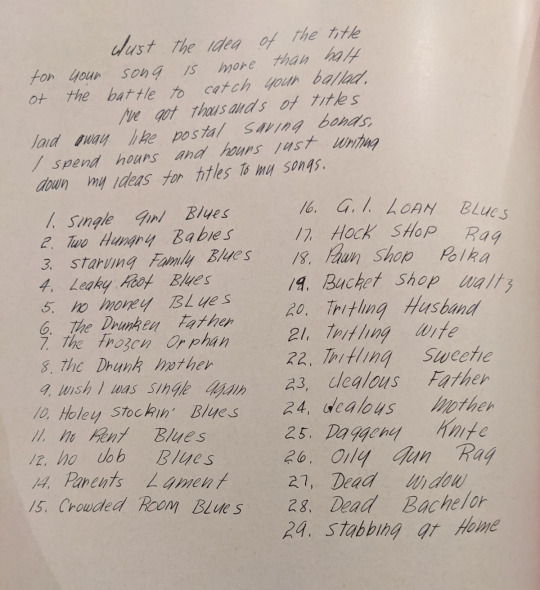 Just the idea of the title
for your song is more than half
of the battle to catch your ballad.
I've got thousands of titles
laid away like postal saving bonds,
I spend hours and hours just writing
down my ideas for titles to my songs.
1. Single Girl Blues
2. Two Hungry Babies
3. Starving Family Blues
4. Leaky Roof Blues
5. no money BLUes
6. The Drunken Father
7. The Frozen Orphan
8. the Drunk mother
9. wish I was single Again
10. Holey Stockin' Blues
11. no Rent Blues
12. no Job Blues
14. Parents Lament
15. Crowded Room BLues
16. G.I. LOAN BLues
17. HOCK SHOP Rag
18. Pawn Shop Polka
19. Bucket Shop waltz
20. Trifling Husband
21. Trifling wife
22. Trifling Sweetie
23. Jealous Father
24. Jealous Mother
25. Daggery Knife
26. Oily Gun Rag
27. Dead Widow
28. Dead Bachelor
29. Stabbing at Home